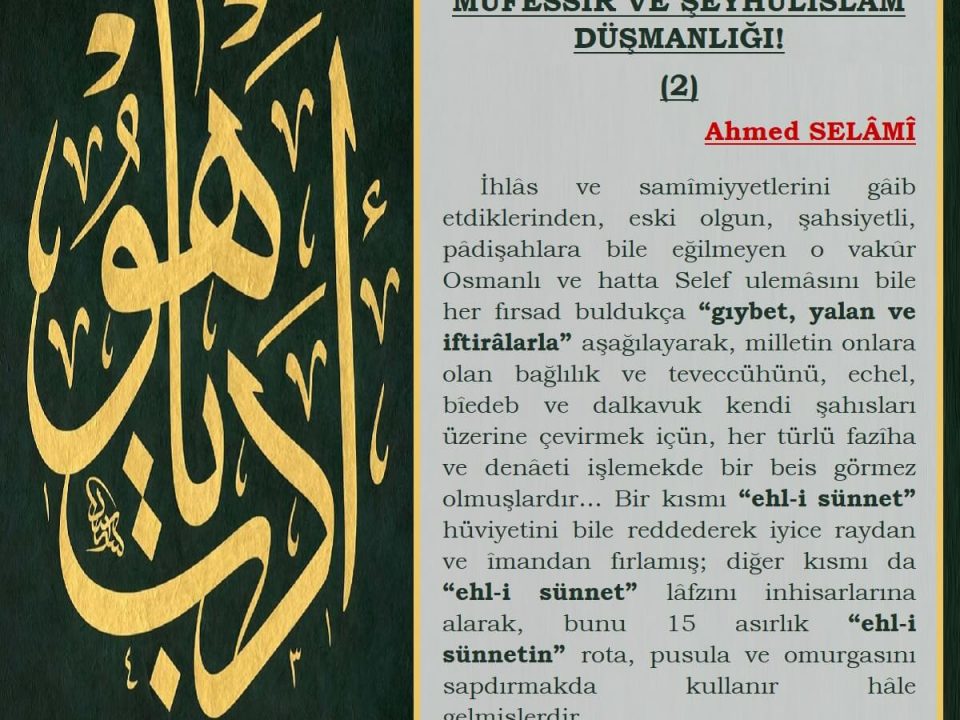 ادب يا هو
MÜFESSİR VE ŞEYHÜLİSLÂM
DÜŞMANLIĞI!
(2)
Ahmed SELÂMÎ
İhlâs ve samîmiyyetlerini gâib
etdiklerinden, eski olgun, şahsiyetli,
pâdişahlara bile eğilmeyen o vakûr
Osmanlı ve hatta Selef ulemâsını bile
her fırsad buldukça “gıybet, yalan ve
iftirâlarla” aşağılayarak, milletin onlara
olan bağlılık ve teveccühünü, echel,
bîedeb ve dalkavuk kendi şahısları
üzerine çevirmek içün, her türlü fazîha
ve denâeti işlemekde bir beis görmez
olmuşlardır... Bir kısmı “ehl-i sünnet”
hüviyetini bile reddederek iyice raydan
ve îmandan fırlamış; diğer kısmı da
“ehl-i sünnet” lâfzını inhisarlarına
alarak, bunu 15 asırlık “ehl-i
sünnetin” rota, pusula ve omurgasını
sapdırmakda kullanır hâle
gelmişlerdir